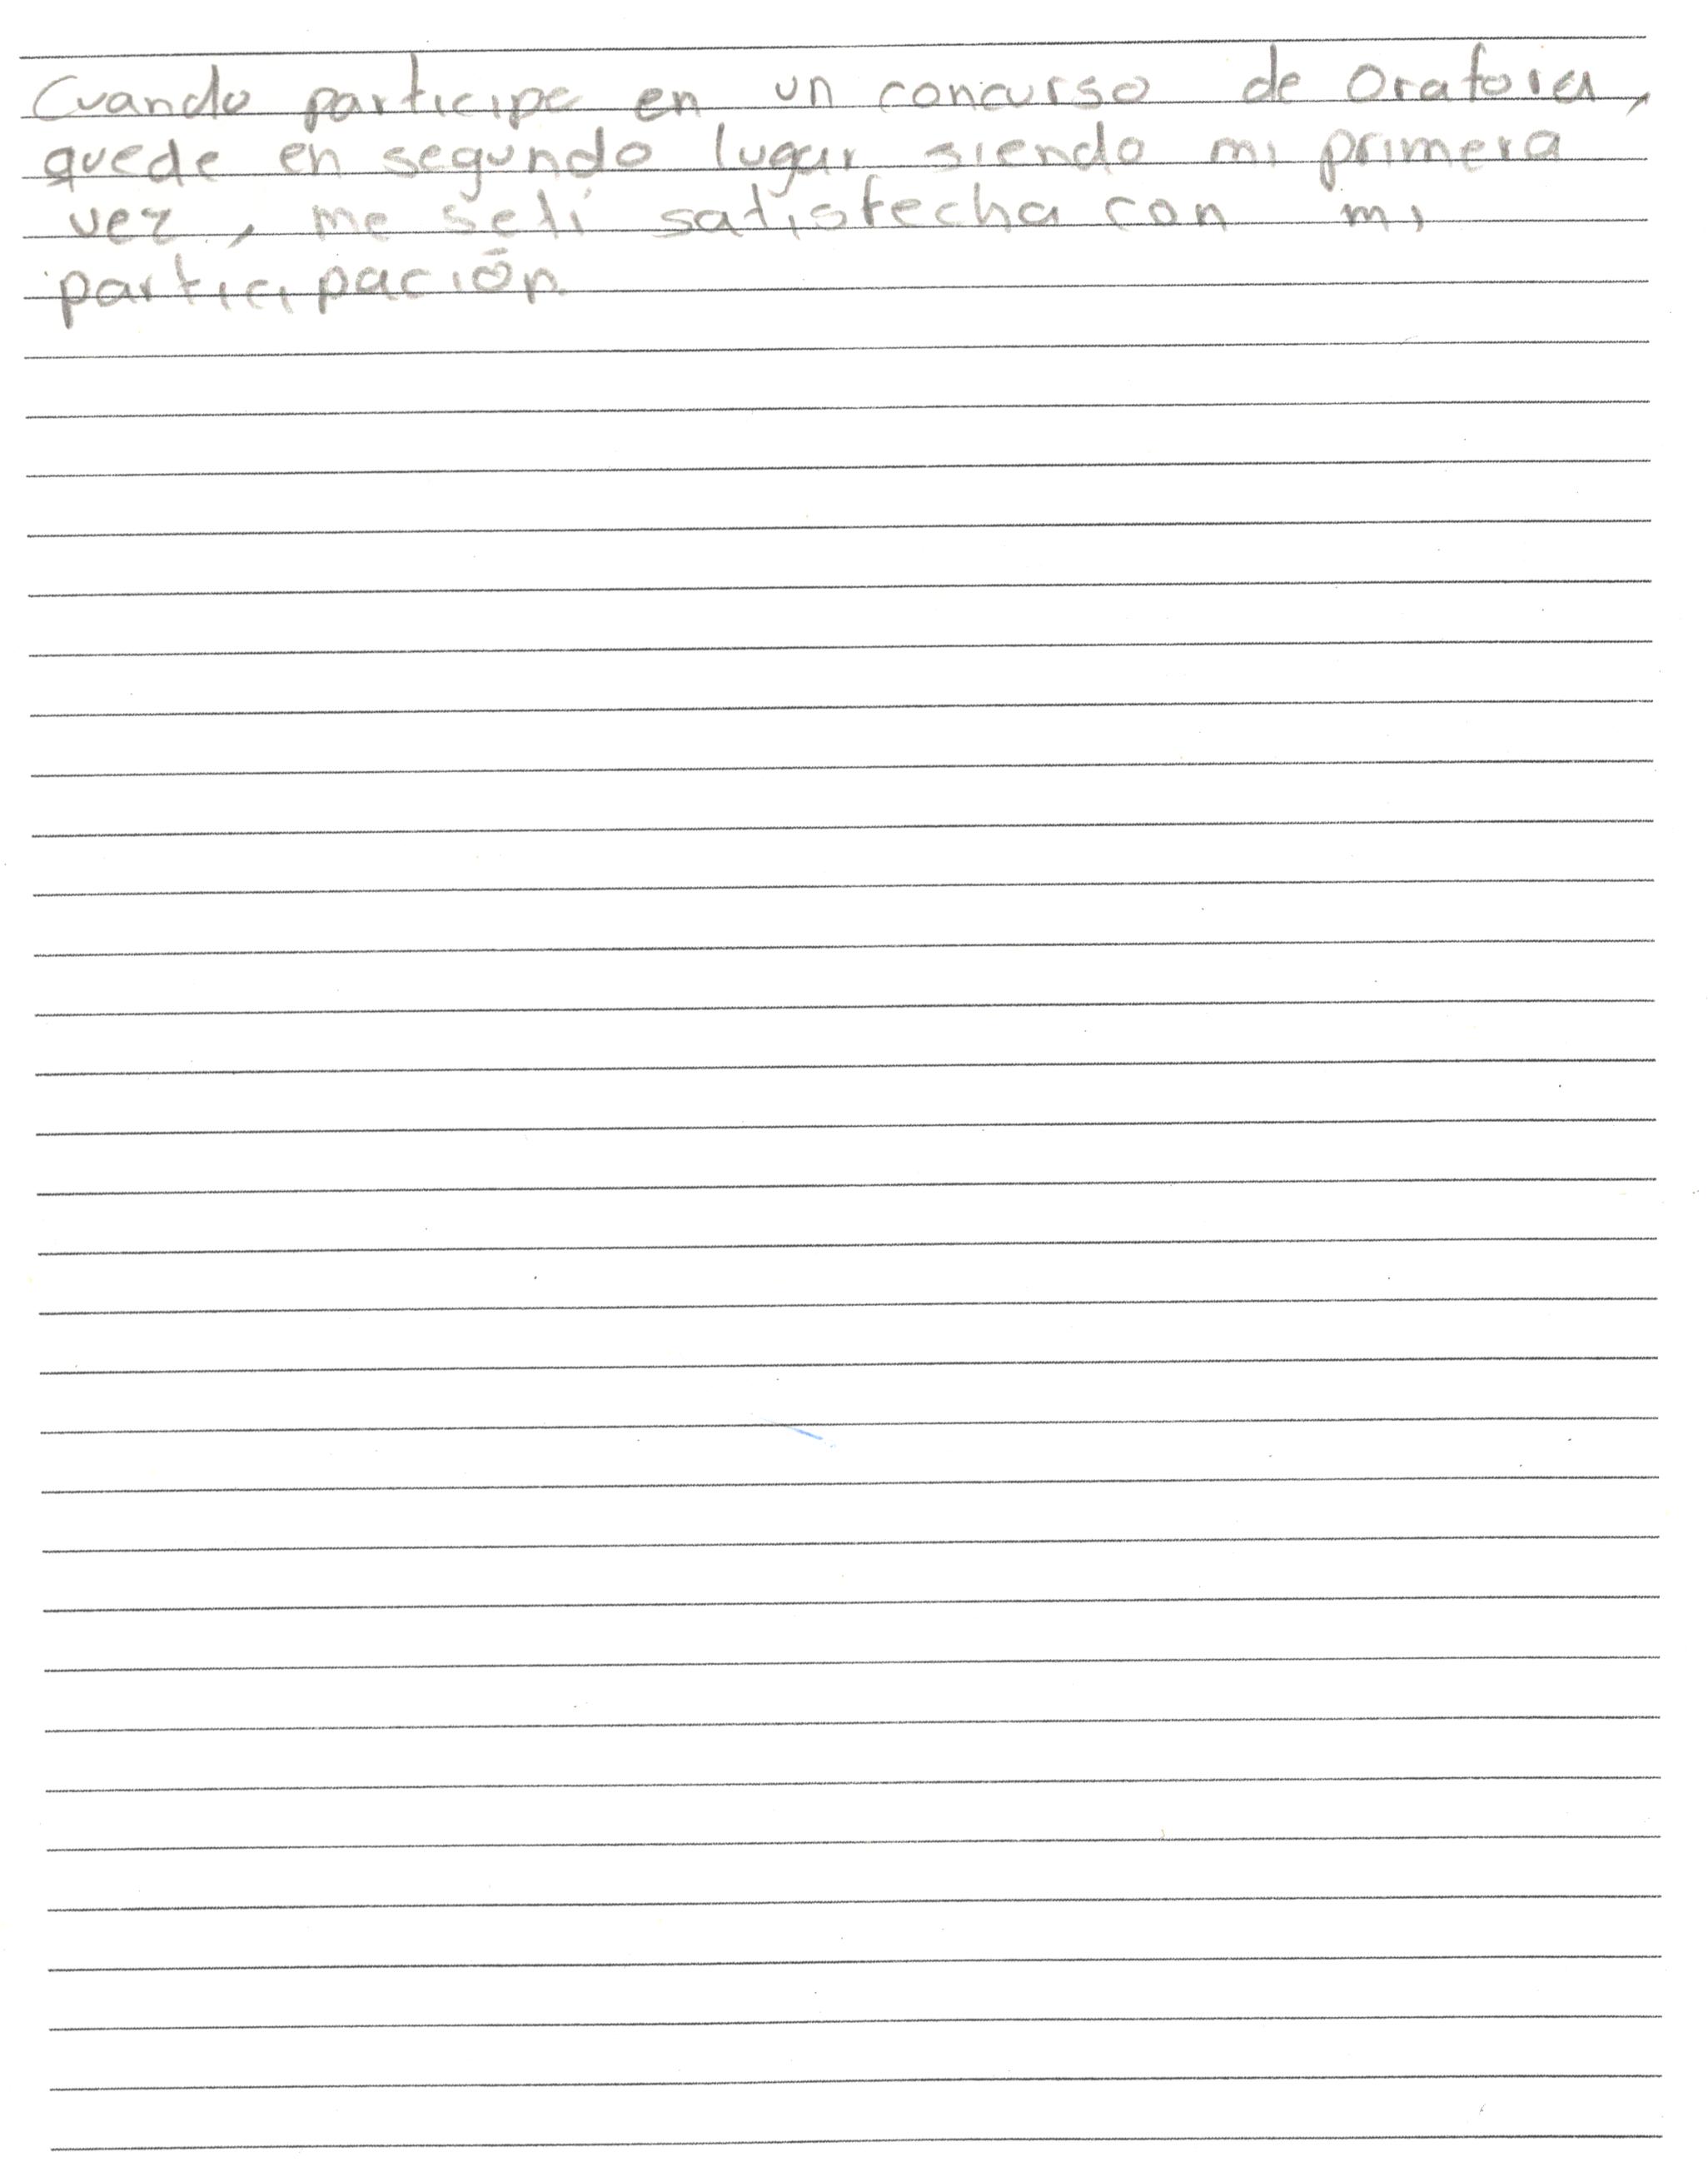 Cuando participe en un concurso de Oratoria,
quede en segundo lugar siendo mi primera
vez, me setí satisfecha con mi
participación.